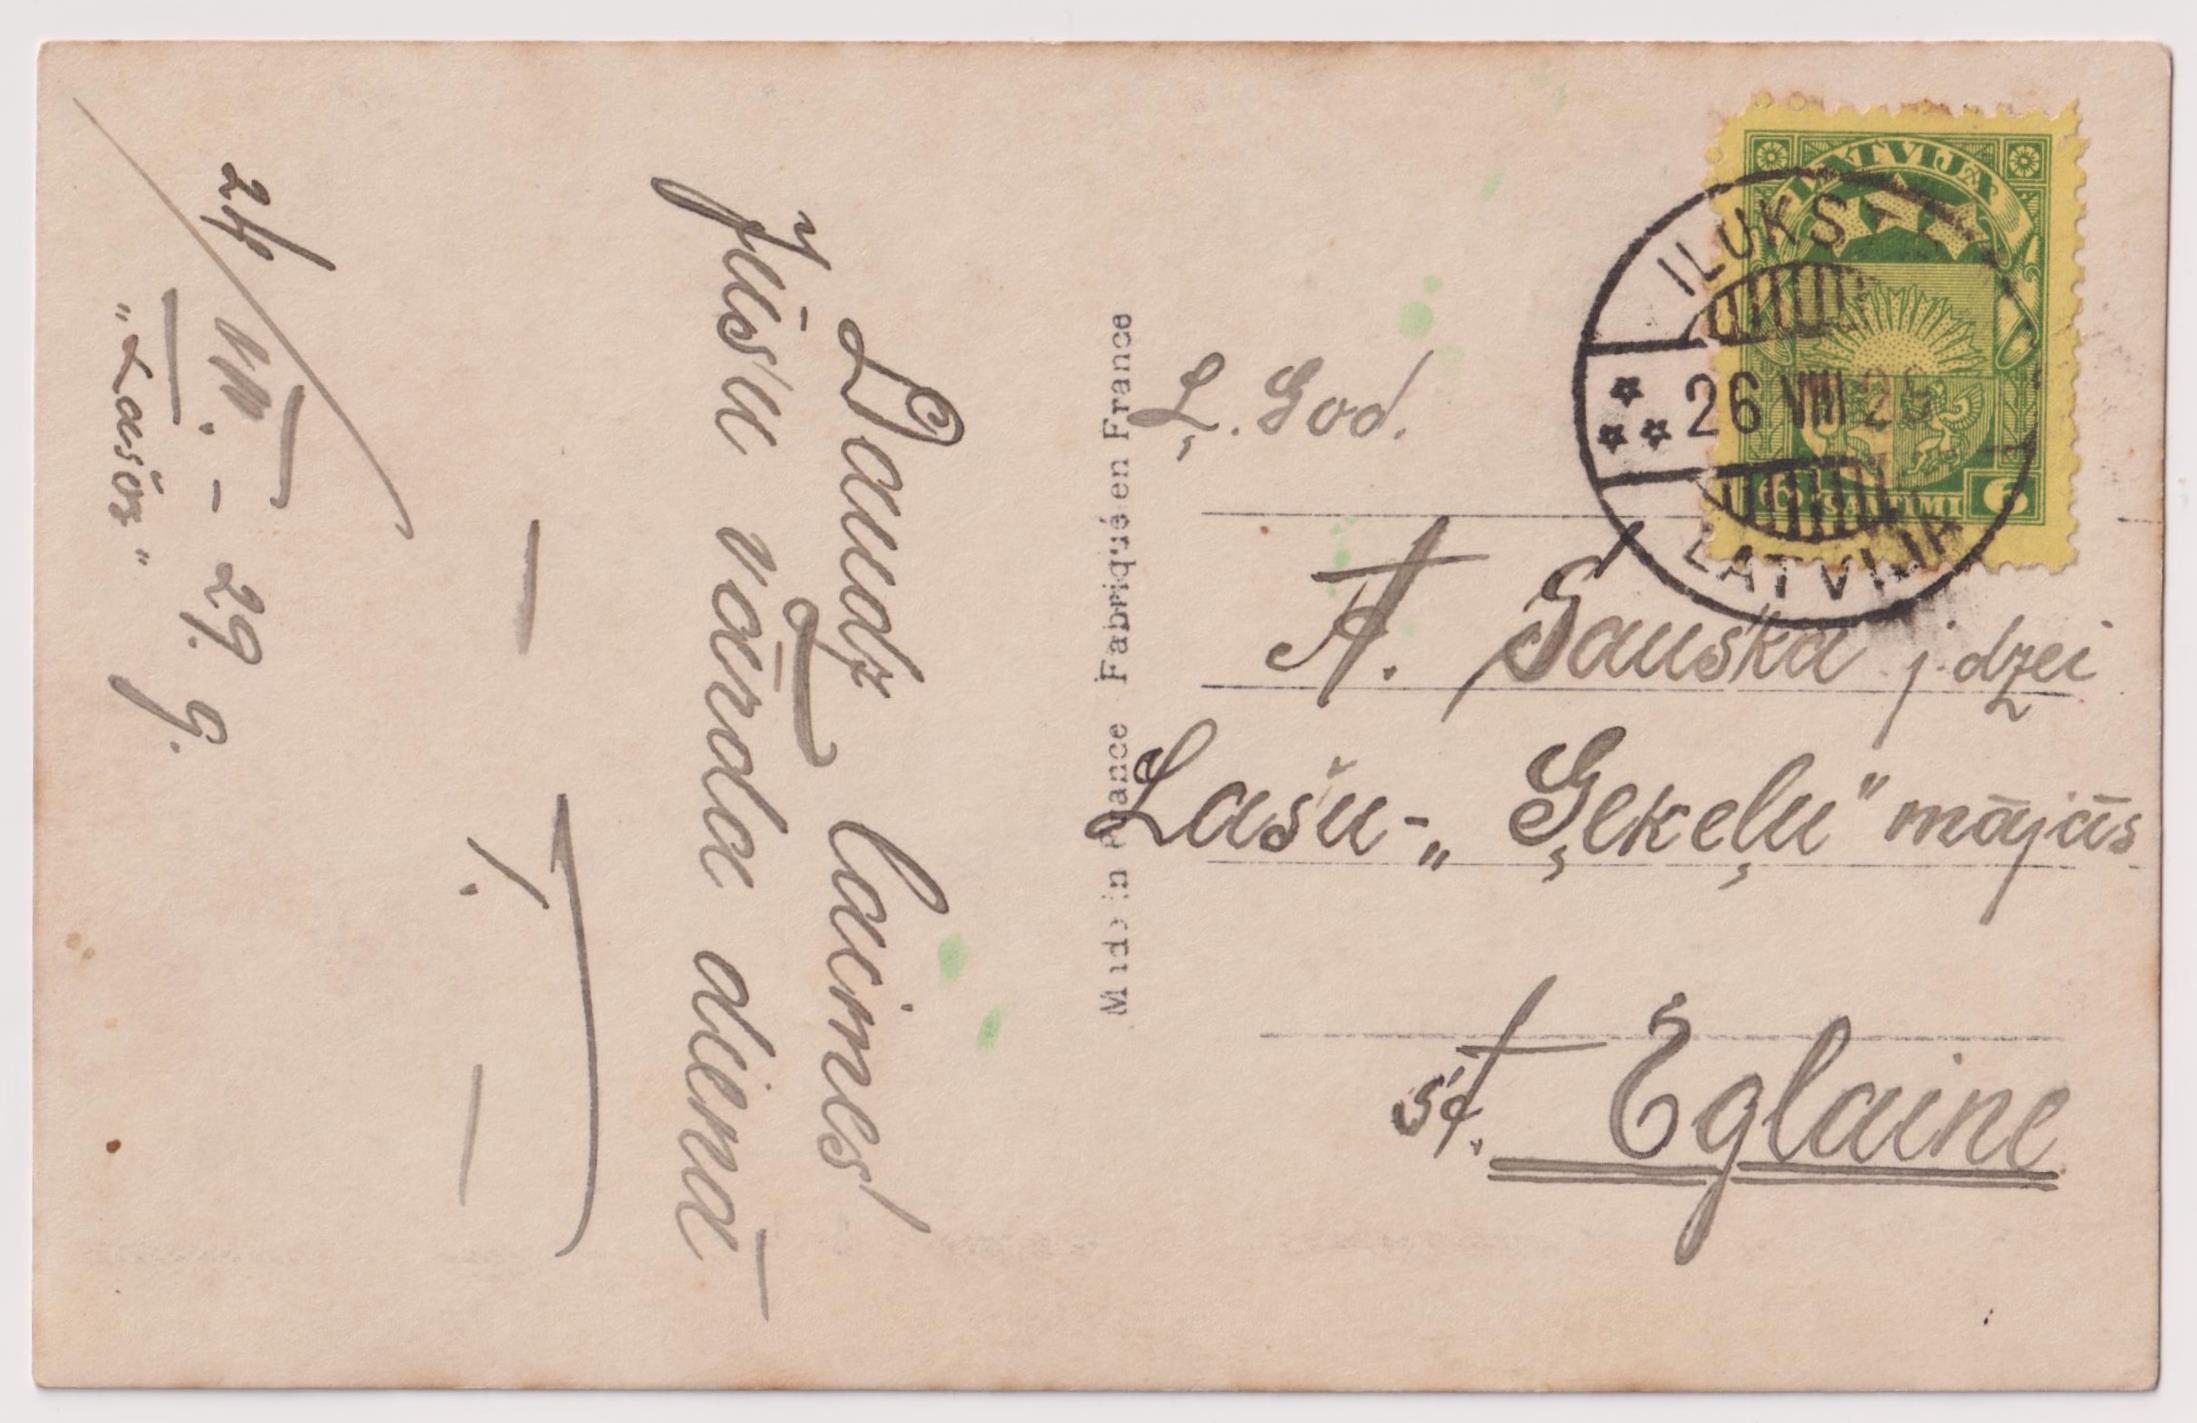 Daudz laimes
Jūsu vārda dienā
24/VIII.-29. g.
"Lašos"
Made in France Fabriqué en France
LATVIJA
6 SANTIMI 6
ILUKS
26 VIII 29
LATVIJA
Ļ. God.
A. Gauska j. dzei
Lašu-„Ģekeļu" mājās
st. Eglaine